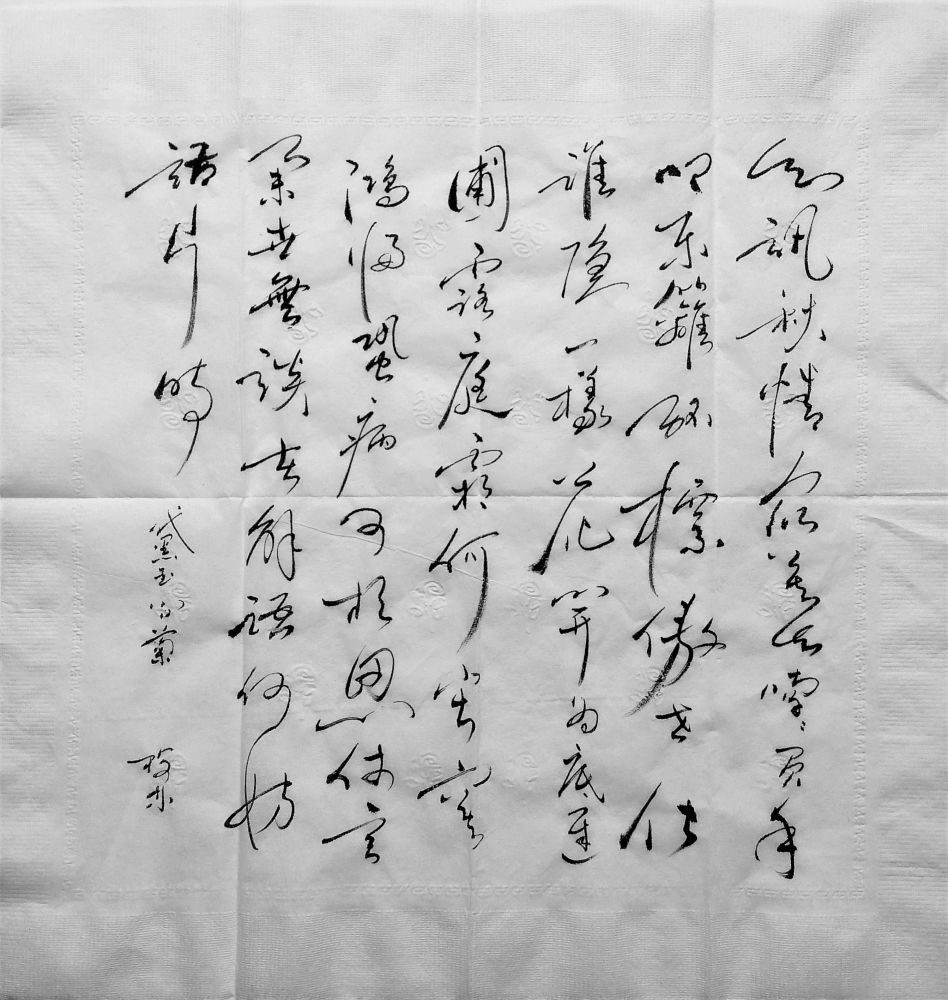 欲訊秋情眾莫知喃喃負手
叩東籬孤標傲世偕
誰隱一樣花開為底遲
圃露庭霜何寂寞
鴻歸蛩病可相思休言
舉世無談者解語何妨
話片時
黛玉問菊